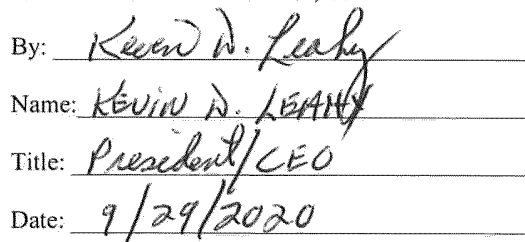 By: Kevin D. Leahy
Name: KEVIN D. LEAHY
Title: President/CEO
Date: 9/29/2020